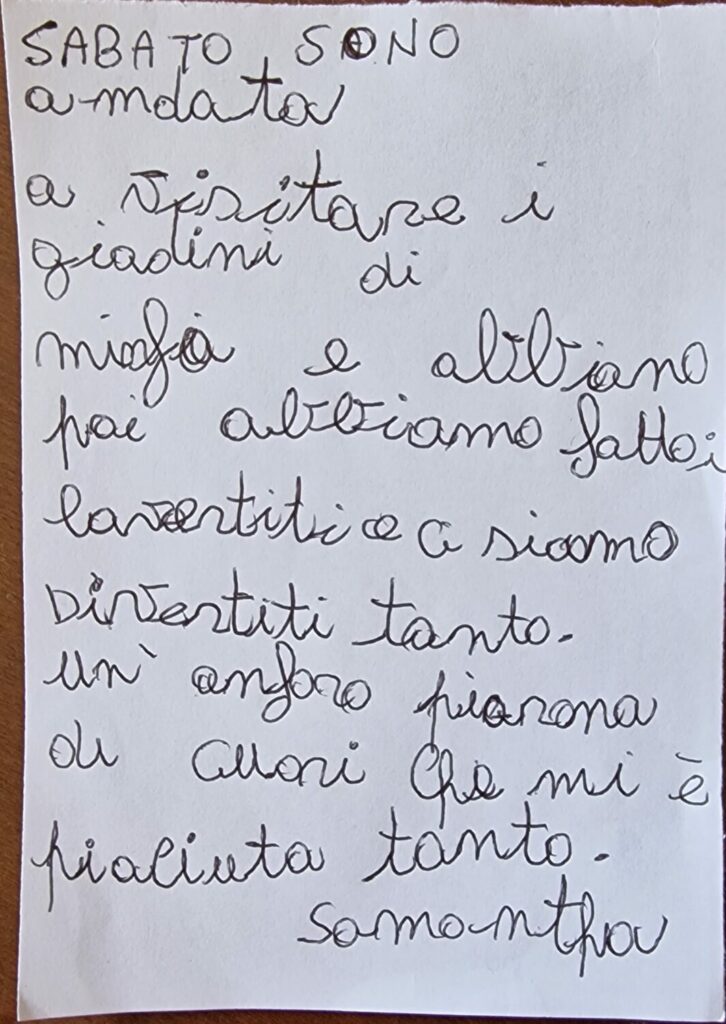 SABATO SONO
amdata
a visitare i
giadini di
miafia e abbiano
poi abbiamo fattoi
lavertitie ci siamo
Divertiti tanto.
un' anforo piarona
di cuori che mi è
piaciuta tanto.
Samamtha